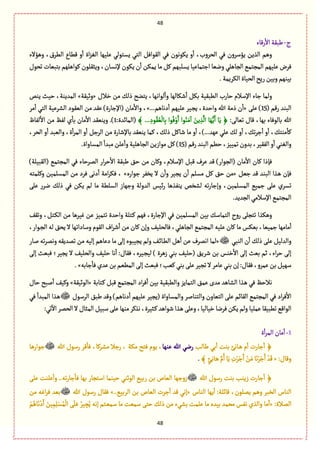 48
ج-طبقة الأرقاء
وهم الذين يؤسرون في الحروب ، أو يكونون في القوافل التي يستولي عليها الغزاة أو قطاع الطرق ، وهؤلاء
فرض عليهم المجتمع الجاهلي وضعا اجتماعيا يسلبهم كل ما يمكن أن يكون لإنسان ، ويثقلون كواهلهم بتبعات تحول
بينهم وبين ريح الحياة الكريمة .
ولما جاء الإسلام حارب الطبقية بكل أشكالها وألوانها ، يتضح ذلك من خلال «وثيقة» المدينة ، حيث ينص
البند رقم (15) على «أن ذمة الله واحدة ، يجير عليهم أدناهم...» ، والأمان (الإجارة) عقد من العقود الشرعية التي أمر
الله بالوفاء بها ، قال تعالى: ﴿ يَا أَيُّهَا الَّذِينَ آمَنُوا أَوْفُوا بِالْعُقُودِ... ﴾ (المائدة:1). وينعقد الأمان بأي لفظ من الألفاظ
كأمنتك ، أو أجرتك ، أو لك علي عهد...) ، أو ما شاكل ذلك ، كما ينعقد بالإشارة من الرجل أو المرأة ، والعبد أو الحر ،
والغني أو الفقير ، بدون تمييز ، حطم البند رقم (15) كل موازين الجاهلية وأعلن مبدأ المساواة.
فإذا كان الأمان (الجوار) قد عرف قبل الإسلام ، وكان من حق طبقة الأحرار الصرحاء في المجتمع (القبيلة)
فإن هذا البند قد جعل «من حق كل مسلم أن يجير وأن لا يخفر جواره» ، فكرامة أدنى فرد من المسلمين وكلمته
تسري على جميع المسلمين ، وإجارته لشخص ينفذها رئيس الدولة وجهاز السلطة ما لم يكن في ذلك ضرر على
المجتمع الإسلامي الجديد.
وهكذا تتجلى روح التماسك بين المسلمين في الإجارة ، فهم كتلة واحدة تتميز عن غيرها من الكتل ، وتقف
أمامها جميعا ، بعكس ما كان عليه المجتمع الجاهلي ، فالحليف وإن كان من أشراف القوم وساداتها لا يحق له الجوار ،
والدليل على ذلك أن النبي ﷺ «لما انصرف من أهل الطائف ولم يجيبوه إلى ما دعاهم إليه من تصديقه ونصرته صار
إلى حراء ، ثم بعث إلى الأخنس بن شريق (حليف بني زهرة ) ليجيره ، فقال: أنا حليف والحليف لا يجير ؛ فبعث إلى
سهيل بن عمرو ، فقال: إن بني عامر لا تجير على بني كعب ؛ فبعث إلى المطعم بن عدي فأجابه» .
نلاحظ في هذا الشاهد مدى عمق التمايز والطبقية بين أفراد المجتمع قبل كتابة «الوثيقة» وكيف أصبح حال
الأفراد في المجتمع القائم على التعاون والتناصر والمساواة (يجير عليهم أدناهم) وقد طبق الرسول ﷺ هذا المبدأ في
الواقع تطبيقا عمليا ولم يكن فرضا خياليا ، وعلى هذا شواهد كثيرة ، نذكر منها على سبيل المثال لا الحصر الآتي:
1- أمان المرأة
﴿ أجارت أم هانئ بنت أبي طالب رضي الله عنها ، يوم فتح مكة ، رجلا مشركا ، فأقر رسول الله ﷺ جوارها
وقال: «
﴿ أجارت زينب بنت رسول الله ﷺ زوجها العاص بن ربيع الوثني حينما استجار بها فأجارته، وأعلنت على
الناس الخبر وهم يصلون ، قائلة: أيها الناس «إني قد أجرت العاص بن الربيع..» فقال رسول الله ﷺ بعد فراغه من
الصلاة: «أما والذي نفس محمد بيده ما علمت بشيء من ذلك حتى سمعت ما سمعتم إنه يُجِيرُ عَلَى الْمُسْلِمِينَ أَدْنَاهُمْ
48